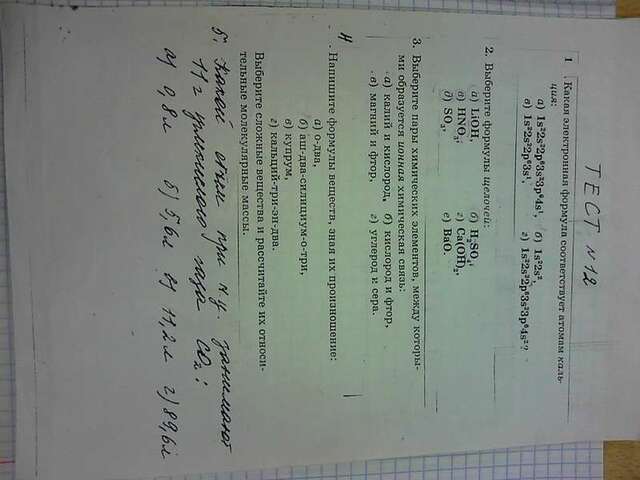 ТЕСТ №12
1 Какая электронная формула соответствует атомам каль-
ция:
а) 1s²2s²2p⁶3s²3p⁶4s¹, б) 1s²2s²,
в) 1s²2s²2p⁶3s¹, г) 1s²2s²2p⁶3s²3p⁶4s²?
2. Выберите формулы щелочей:
а) LiOH, б) H₂SO₄,
в) HNO₃, г) Ca(OH)₂,
д) SO₃, е) BaO.
3. Выберите пары химических элементов, между которы-
ми образуется ионная химическая связь:
а) калий и кислород, б) кислород и фтор,
в) магний и фтор, г) углерод и сера.
4. Напишите формулы веществ, зная их произношение:
а) о-два,
б) аш-два-силициум-о-три,
в) купрум,
г) кальций-три-эн-два.
Выберите сложные вещества и рассчитайте их относи-
тельные молекулярные массы.
5. Какой объем при н.у. занимают
11 г углекислого газа CO₂:
а) 9,8 л б) 5,6 л в) 11,2 л г) 89,6 л